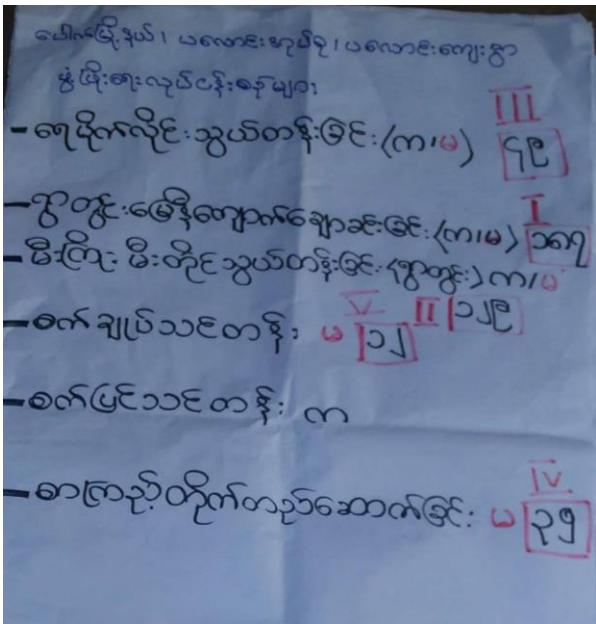 ပေါက်မြို့နယ်၊ ပလောင်းအုပ်စု၊ ပလောင်းကျေးရွာ
ဖွံ့ဖြိုးရေးလုပ်ငန်းစဉ်များ
III
- ရေပိုက်လိုင်းသွယ်တန်းခြင်း (က၊မ) ၄၉
I
- ရွာတွင်းမြေနီကျောက်ချောခင်းခြင်း (က၊မ) ၁၈၇
- မီးကြိုးမီးတိုင်သွယ်တန်းခြင်း (ရွာတွင်း) က၊မ
V II ၁၂၉
- စက်ချုပ်သင်တန်း မ ၁၂
- စက်ပြင်သင်တန်း က
IV
- စာကြည့်တိုက်တည်ဆောက်ခြင်း မ ၃၅